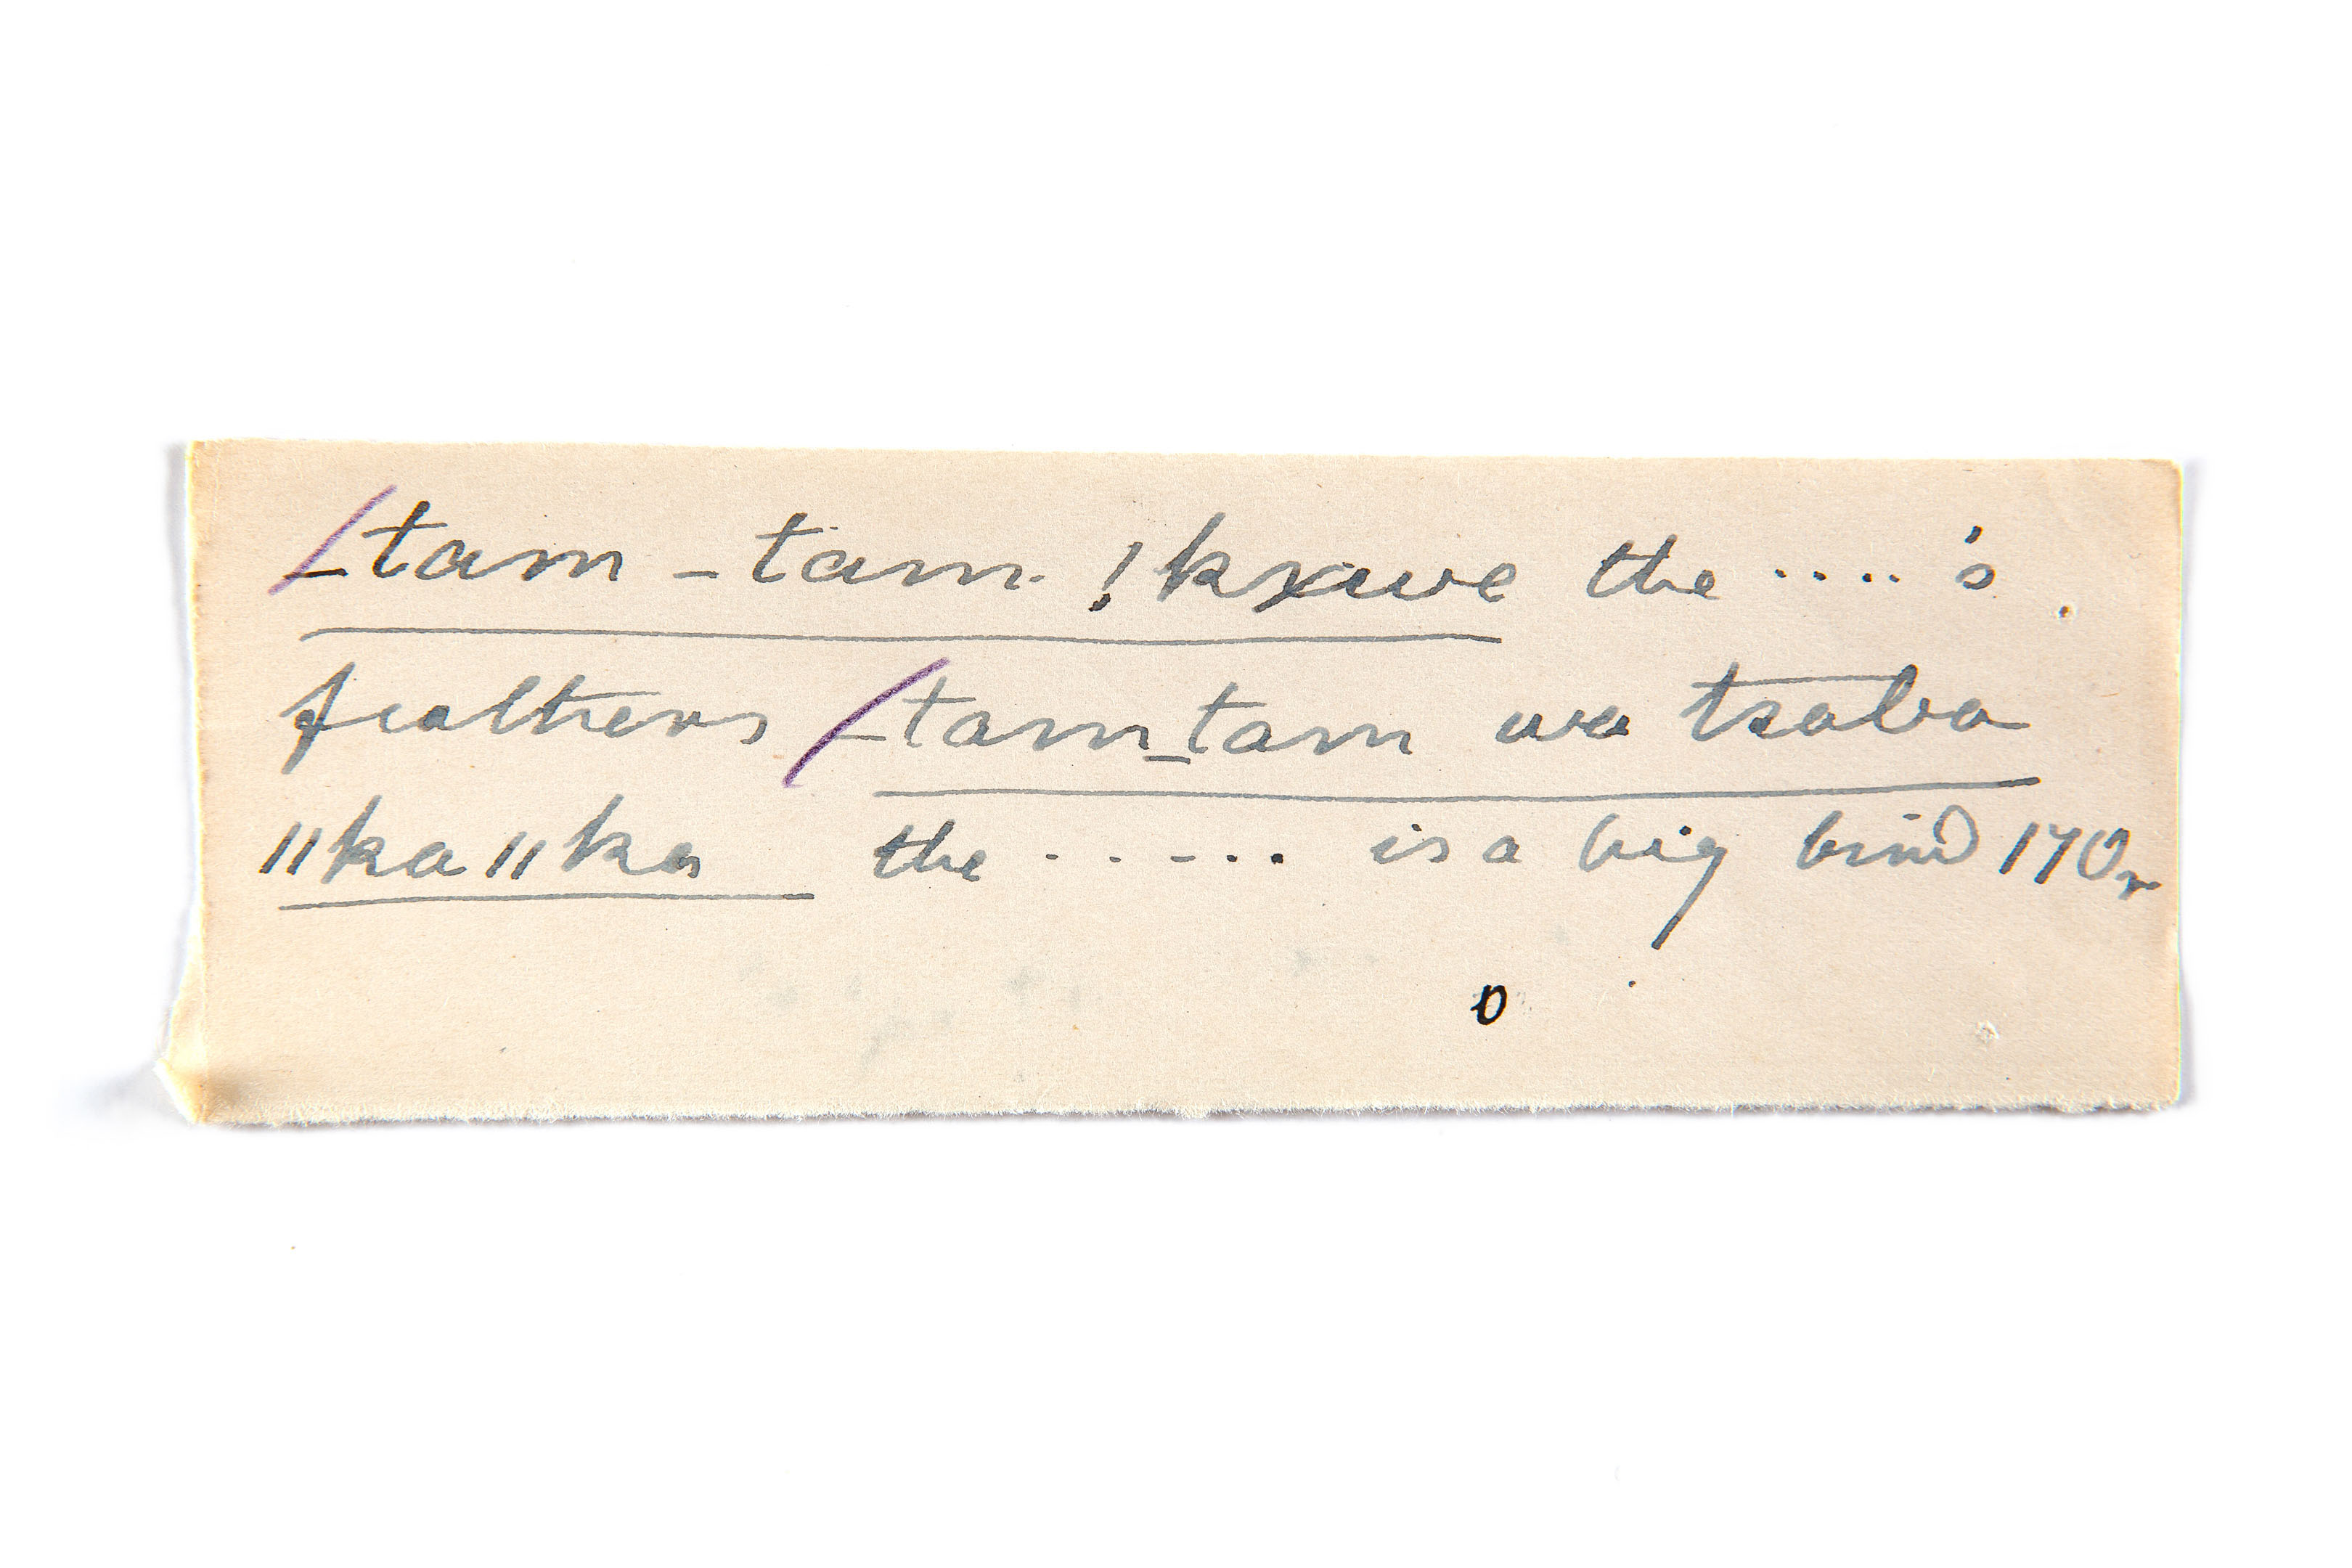 _tam _ tam. !kxuve the ....'s
feathers _tam_tam wa tsaba
"ka "ka the ..-... is a big bird 170r
o